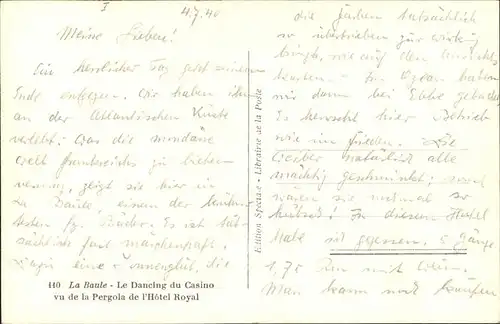 4.7.40
Meine Lieben!
Ein herrlicher Tag geht seinem
Ende entgegen. Wir haben ihn
an der Atlantischen Küste
verlebt. Was die mondäne
Welt Frankreichs zu bieten
vermag, zeigt sie hier in
La Baule einem der
Bäder. Es ist tat-
sächlich fast märchenhaft.
Dazu eine Sonnenglut, die
110 La Baule - Le Dancing du Casino
vu de la Pergola de l'Hôtel Royal
Edition Spéciale - Librairie de la Poste
die Farben tatsächlich
so übertrieben zur Wirkung
bringt, wie auf den Ansichts-
karten. - Im Ozean haben
wir dann bei Ebbe gebadet.
Es herrscht hier Betrieb
wie im Frieden. Die
Weiber natürlich alle
mächtig geschminkt; sonst
wären sie nichtmal so
hübsch! In diesem Hotel
habe ich gegessen. 5 Gänge
1,75 Rm mit Wein.
Man kann noch kaufen